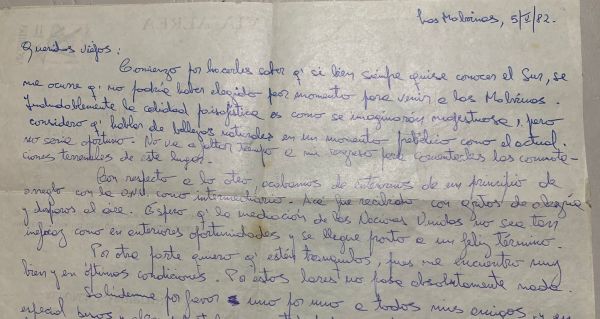 VIA AEREA
Las Malvinas, 5/V/82.
Queridos viejos:
Comienzo por hacerles saber q' si bien siempre quise conocer el Sur, se
me ocurre q' no podría haber elegido peor momento para venir a las Malvinas.
Indudablemente la calidad paisajística es como se imaginarán majestuosa, pero
considero q' hablar de bellezas naturales en un momento prebélico como el actual.
no sería oportuno. No va a faltar tiempo a mi regreso para comentarles las connota-
ciones terrenales de este lugar.
Con respecto a lo otro, acabamos de enterarnos de un principio de
arreglo con la ONU como intermediario. Acá fue recibido con gritos de alegría
y disparos al aire. Espero q' la mediación de las Naciones Unidas no sea tan
ineficaz como en anteriores oportunidades y se llegue pronto a un feliz término.
Por otra parte quiero q' estén tranquilos, pues me encuentro muy
bien y en óptimas condiciones. Por estos lares no pasa absolutamente nada.
Salúdenme por favor uno por uno a todos mis amigos, y en
especial